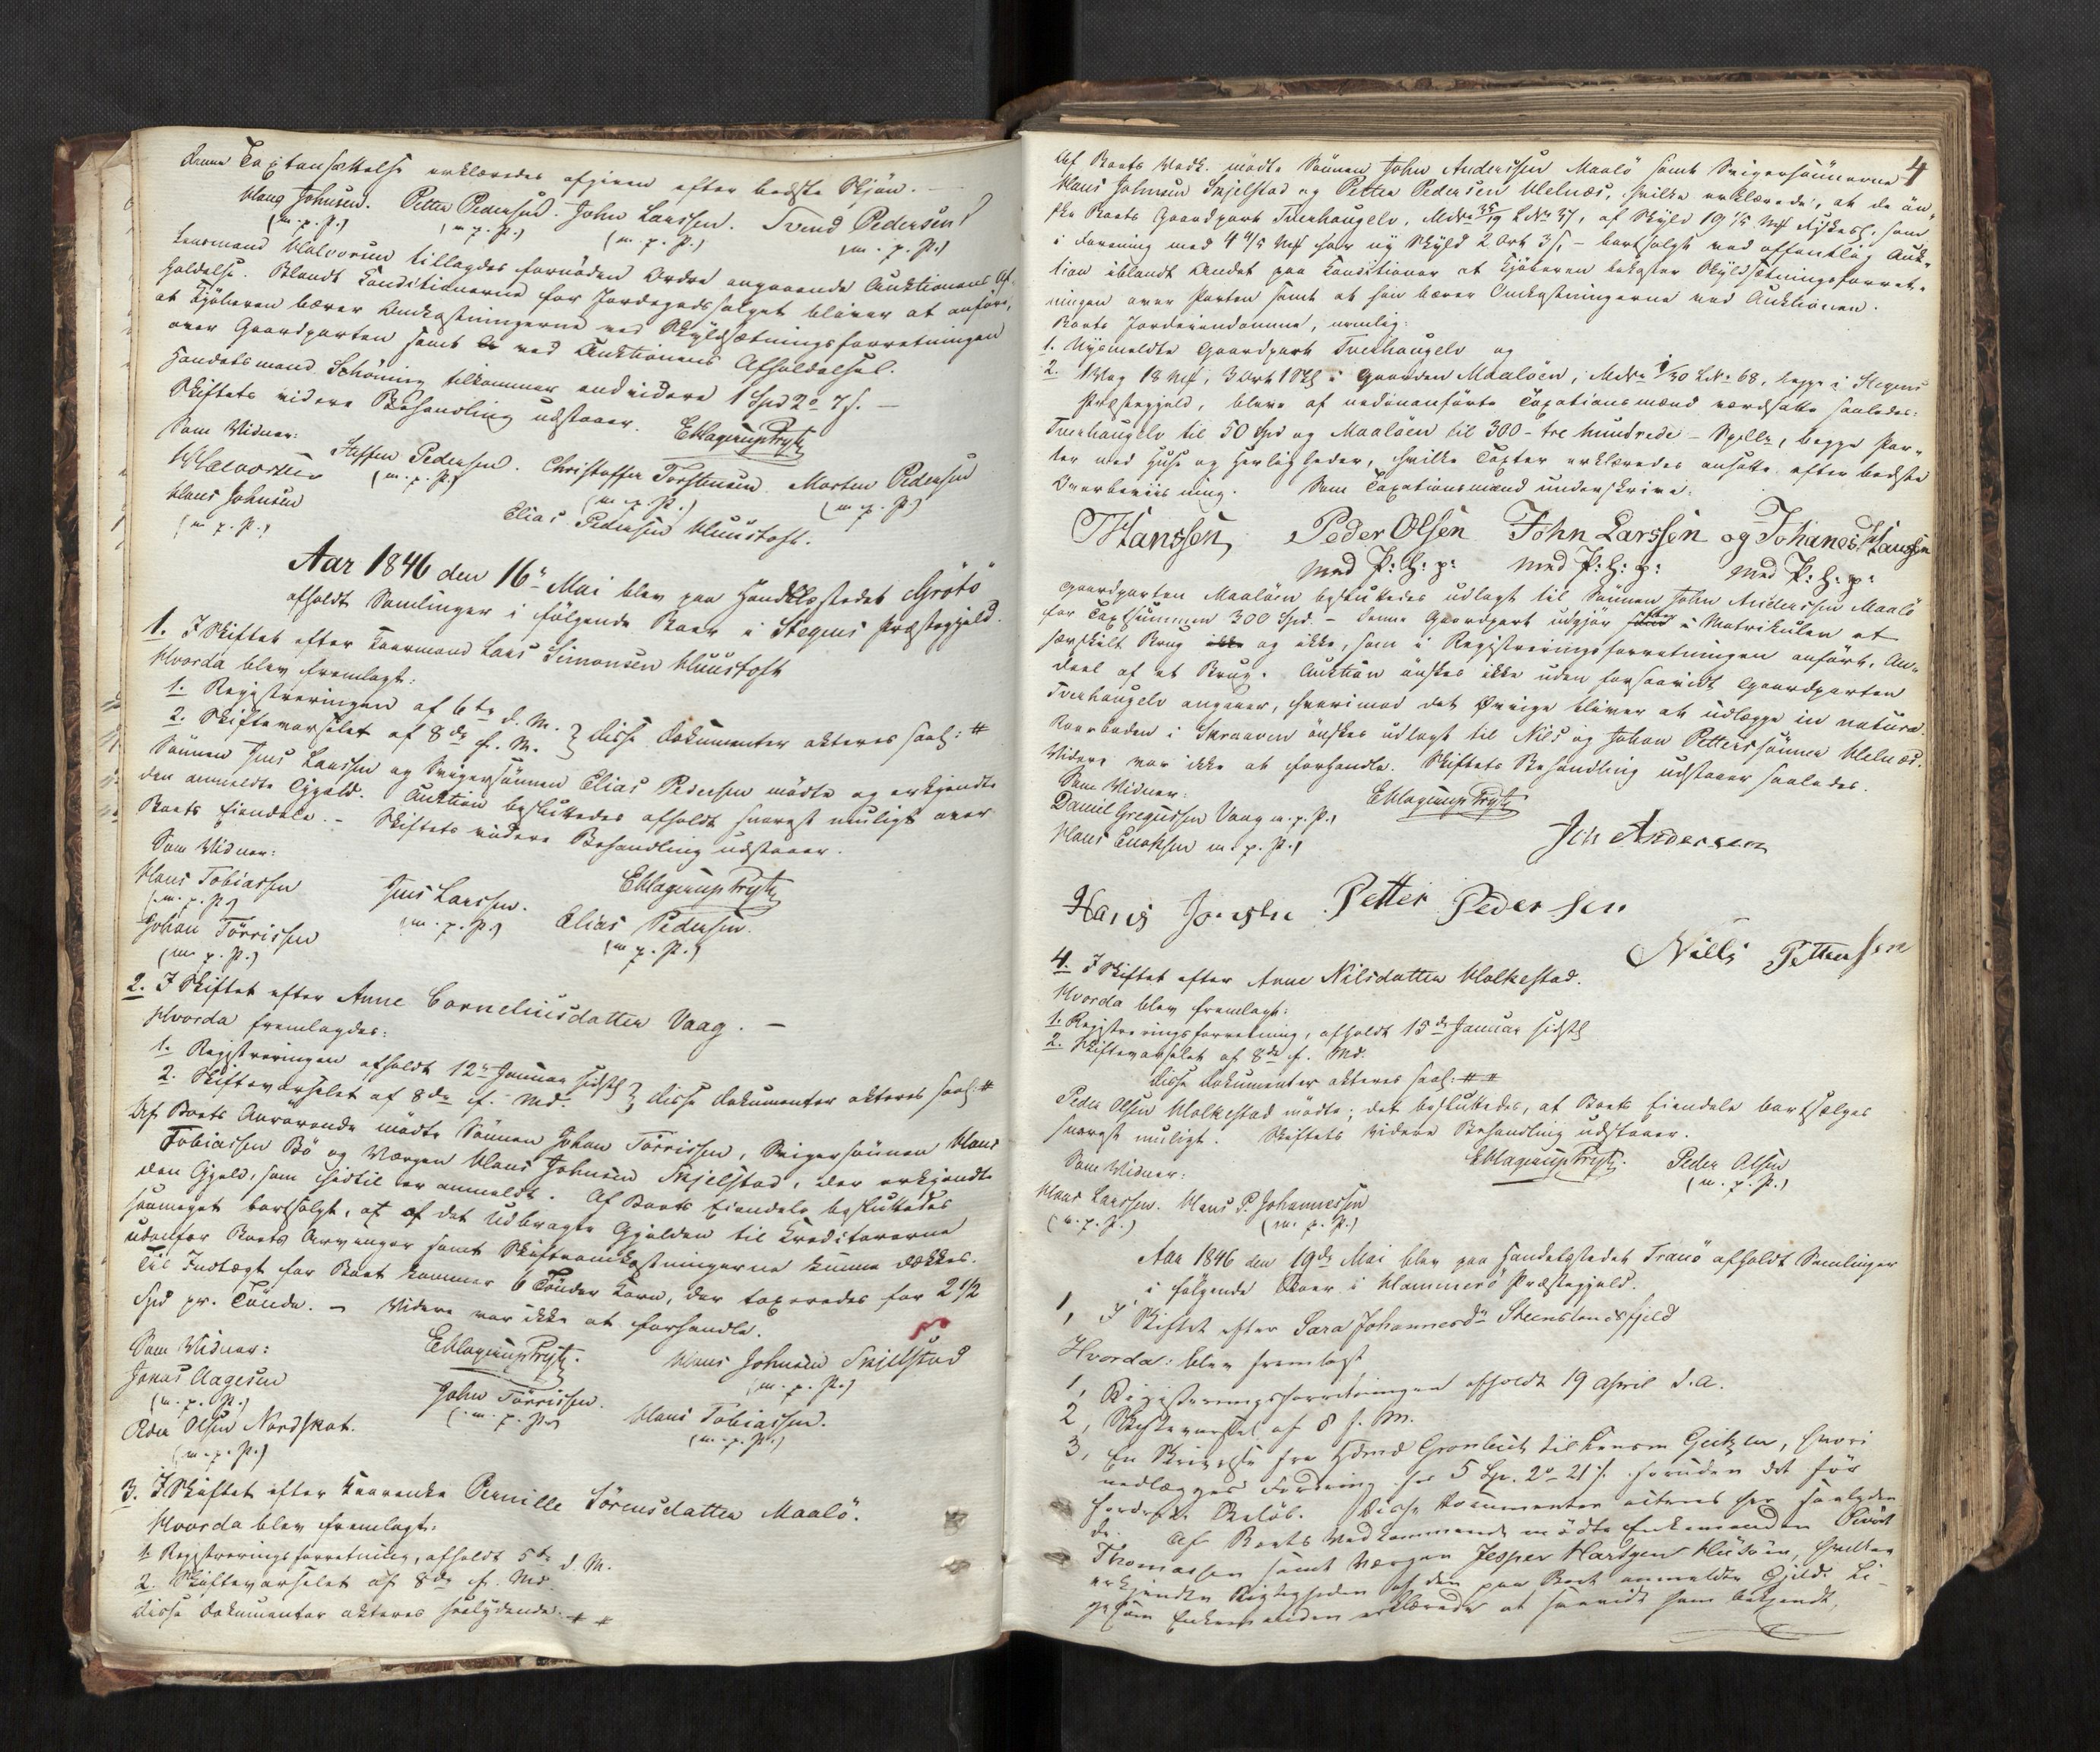 denne Taxtansættelse erklæredes afgiven efter bedste Skjøn. –
Hans Johnsen. Petter Pedersen. John Larssen. Svend Pedersen
(m. p. P.) (m. p. P.) (m. p. P.) (m. p. P.)
Lensmand Halvorsen tillagdes fornøden Ordre angaaende Auktionens Af-
holdelse. Blandt Conditionerne for Jordegodssalget bliver at anføre,
at Kjøberen bærer Omkostningerne ved Skyldsætningsforretningen
over Gaardparten samt ved Auktionens Afholdelse.
Handelsmand Schöning tilkommer endvidere 1 Spd 2 o 7 s. –
Skiftets videre Behandling udstaaer. EHagerupPrytz
Som Vidner:
Steffen Pedersen. Christoffer Torstensen. Morten Pedersen
(m. p. P.) (m. p. P.) (m. p. P.)
Halvorsen
Hans Johnsen Elias Pedersen Huustoft.
(m. p. P.)
Aar 1846 den 16de Mai blev paa Handelsstedet Grötö
afholdt Samlinger i følgende Boer i Stegens Præstegjeld.
1. I Skiftet efter Kaarmand Lars Simonsen Huustoft
Hvorda blev fremlagt:
1. Registreringen af 6te d. M.
2. Skiftevarselet af 8de f. M. } disse Dokumenter akteres saal: #
Sønnen Jens Larssen og Svigersønnen Elias Pedersen mødte og erkjendte
den anmeldte Gjæld. Auktion besluttedes afholdt snarest muligt over
Boets Eiendele. – Skiftets videre Behandling udstaaer.
Som Vidner:
Hans Tobiassen Jens Larssen. EHagerupPrytz
(m. p. P.) (m. p. P.) Elias Pedersen.
Johan Törrissen (m. p. P.)
(m. p. P.)
2. I Skiftet efter Anne Corneliusdatter Vaag. –
Hvorda fremlagdes:
1. Registreringen afholdt 12te Januar sidstl
2. Skiftevarselet af 8de f. Md. } disse Dokumenter akteres saal #
Af Boets Arvevende mødte Sønnen Johan Törrissen, Svigersønnen Hans
Tobiassen Bö og Værgen Hans Johnsen Skjelstad, der erkjendte
den Gjæld, som hidtil er anmeldt. Af Boets Eiendele besluttedes
saameget bortsolgt, at af det Udbragte Gjælden til Kreditorerne
udenfor Boets Arvinger samt Skifteomkostningerne kunne dækkes.
Til Indtægt for Boet kommer 6 Tönder Korn, der taxeredes for 2 1/2
Spd pr. Tönde. – Videre var ikke at forhandle.
Som Vidner: EHagerupPrytz. Hans Johnsen Skjelstad
Jonas Aagesen (m. p. P.)
(m. p. P.) John Törrissen. Hans Tobiassen.
Peder Olsen Nordskot. (m. p. P.) (m. p. P.)
(m. p. P.)
3. I Skiftet efter Kaarenke Pernille Sörensdatter Maalö.
Hvorda blev fremlagt:
1. Registreringsforretning, afholdt 5te d. M.
2. Skiftevarselet af 8de f. Md.
disse Dokumenter akteres saalydende: # #
4
Af Boets Vedk. mødte Sønnen John Anderssen Maalö samt Svigersønnerne
Hans Johnsen Skjelstad og Petter Pedersen Helnæs, hvilke erklærede, at de øn-
ske Boets Gaardpart Tverhaugelv, M.No 35/19 L.No 37, af Skyld 19 1/5 M# Fiskes:, som
i Forening med 4 4/5 M# har ny Skyld 2 Ort 3 s. – bortsolgt ved offentlig Auk-
tion iblandt Andet paa Conditioner at Kjøberen bekoster Skyldsætningsforret-
ningen over Parten samt at han bærer Omkostningerne ved Auktionen.
Boets Jordeiendomme, nemlig:
1. Nysmeldte Gaardpart Tverhaugelv og
2. 1 Vog 18 M#, 3 Ort 1 Skl i Gaarden Maalöen, M.No 1/30 L.No 68, begge i Stegens
Præstegjeld, bleve af nedenanførte Taxationsmænd værdsatte saaledes:
Tverhaugelv til 50 Spd og Maalöen til 300 – tre hundrede – Spdlr, begge Par-
ter med Huse og Herligheder, hvilke Taxter erklæredes ansatte efter bedste
Overbeviisning. Som Taxationsmænd underskrive:
THanssen Peder Olsen John Larssen og Johanes Hanssen
med P: H: p: med P: H: p: med P: H: p:
Gaardparten Maalöen besluttedes udlagt til Sønnen John Anderssen Maalö
for Taxtsummen 300 Spd. – denne Gaardpart udgjør i Matrikulen et
særskilt Brug og ikke, som i Registreringsforretningen anført, An-
deel af et Brug. Auktion ønskes ikke uden forsaavidt Gaardparten
Tverhaugelv angaaer, hvorimod det Øvrige bliver at udlægge in natura.
Roerboden i Skraaven ønskes udlagt til Nils og Johan Petterssönner Helnæs.
Videre var ikke at forhandle. Skiftets Behandling udstaaer saaledes.
Som Vidner: EHagerupPrytz
Daniel Gregussen Vaag m. p. P.,
Hans Enoksen m. p. P., Joh Andersen
Hans Petter Pedersen
Nills Pettersen
4. I Skiftet efter Anne Nilsdatter Holkestad.
Hvorda blev fremlagt:
1. Registreringsforretning, afholdt 15de Januar sidstl
2. Skiftevarselet af 8de f. Md.
disse Dokumenter akteres saal: # #
Peder Olsen Holkestad mødte; det besluttedes, at Boets Eiendele bortsælges
snarest muligt. Skiftets videre Behandling udstaaer.
Som Vidner: EHagerupPrytz. Peder Olsen
Hans Larssen. Hans P. Johannessen (m. p. P.)
(m. p. P.) (m. p. P.)
Aar 1846 den 19de Mai blev paa Handelsstedet Tranö afholdt Samlinger
i følgende Boer i Hammerö Præstegjeld.
1, I Skiftet efter Sara Johannesdr Steenslandsfjeld
Hvorda: blev fremlagt
1, Registreringsforretningen afholdt 19 April d. A.
2, Skiftevarslet af 8 f. M.
3, En Skrivelse fra Hdmd Grønbech til Lensm Geitzler, hvori
nedlægges Fordring for 5 Sp. 2 o 21 s. foruden det før
fordrede Beløb. Disse Documenter acteres her saalyden
de. Af Boets Vedkommende mødte Enkemanden Sivert
Thomassen samt Værgen Jesper Hartgen Husöen, hvilke
erkjendte Rigtigheden af den paa Boet anmeldte Gjeld. Li-
gesom Enkemanden erklærede at saavidt ham bekjendt,